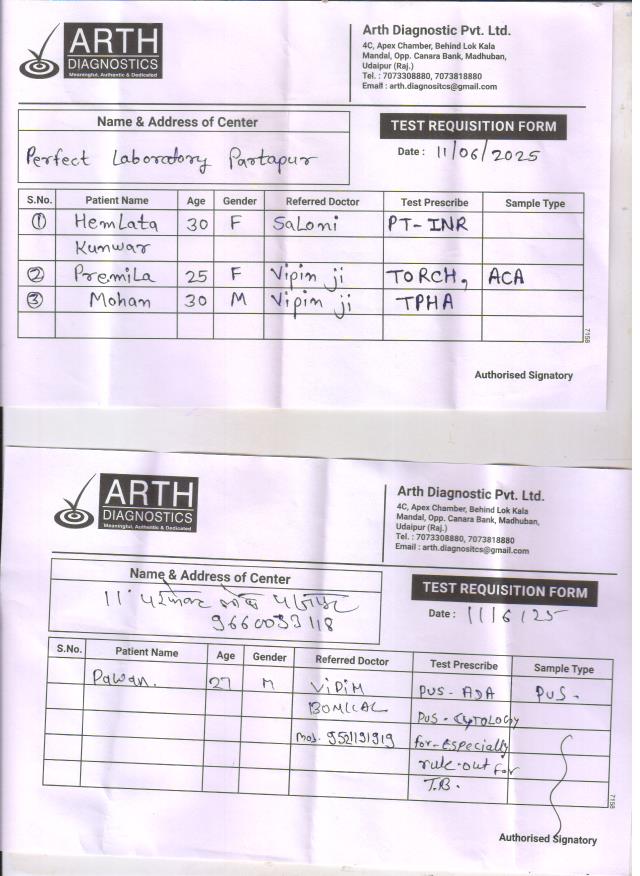 ARTH
DIAGNOSTICS
Meaningful, Authentic & Dedicated
Arth Diagnostic Pvt. Ltd.
4C, Apex Chamber, Behind Lok Kala
Mandal, Opp. Canara Bank, Madhuban,
Udaipur (Raj.)
Tel. : 7073308880, 7073818880
Email : arth.diagnositcs@gmail.com
Name & Address of Center
TEST REQUISITION FORM
Perfect Laboratory Partapur
Date : 11/06/2025
S.No. Patient Name Age Gender Referred Doctor Test Prescribe Sample Type
① HemLata 30 F SaLoni PT-INR
Kunwar
② PremiLa 25 F Vipin ji TORCH, ACA
③ Mohan 30 M Vipin ji TPHA
7158
Authorised Signatory
ARTH
DIAGNOSTICS
Meaningful, Authentic & Dedicated
Arth Diagnostic Pvt. Ltd.
4C, Apex Chamber, Behind Lok Kala
Mandal, Opp. Canara Bank, Madhuban,
Udaipur (Raj.)
Tel. : 7073308880, 7073818880
Email : arth.diagnositcs@gmail.com
Name & Address of Center
TEST REQUISITION FORM
9660033118
Date : 11/6/25
S.No. Patient Name Age Gender Referred Doctor Test Prescribe Sample Type
Pawan. 27 M ViPiM PUS-ADA PUS.
PUS-CYTOLOGY
Mob. 9521191919 for-Especially
rule-out for
T.B.
7158
Authorised Signatory